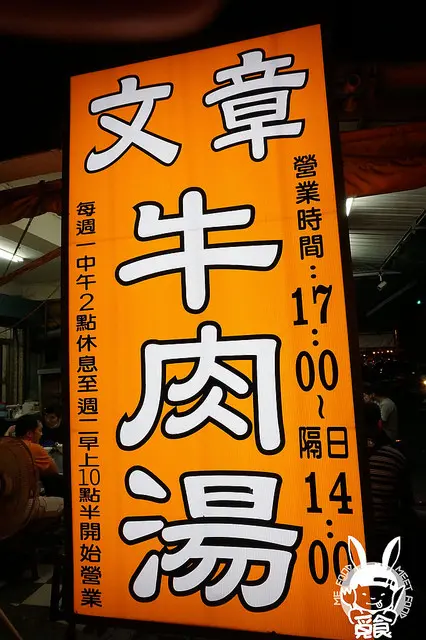 文章
牛肉湯
營業時間:17:00~隔日14:00
每週一中午2點休息至週二早上10點半開始營業
ME FOOD MEET FOOD
覓食